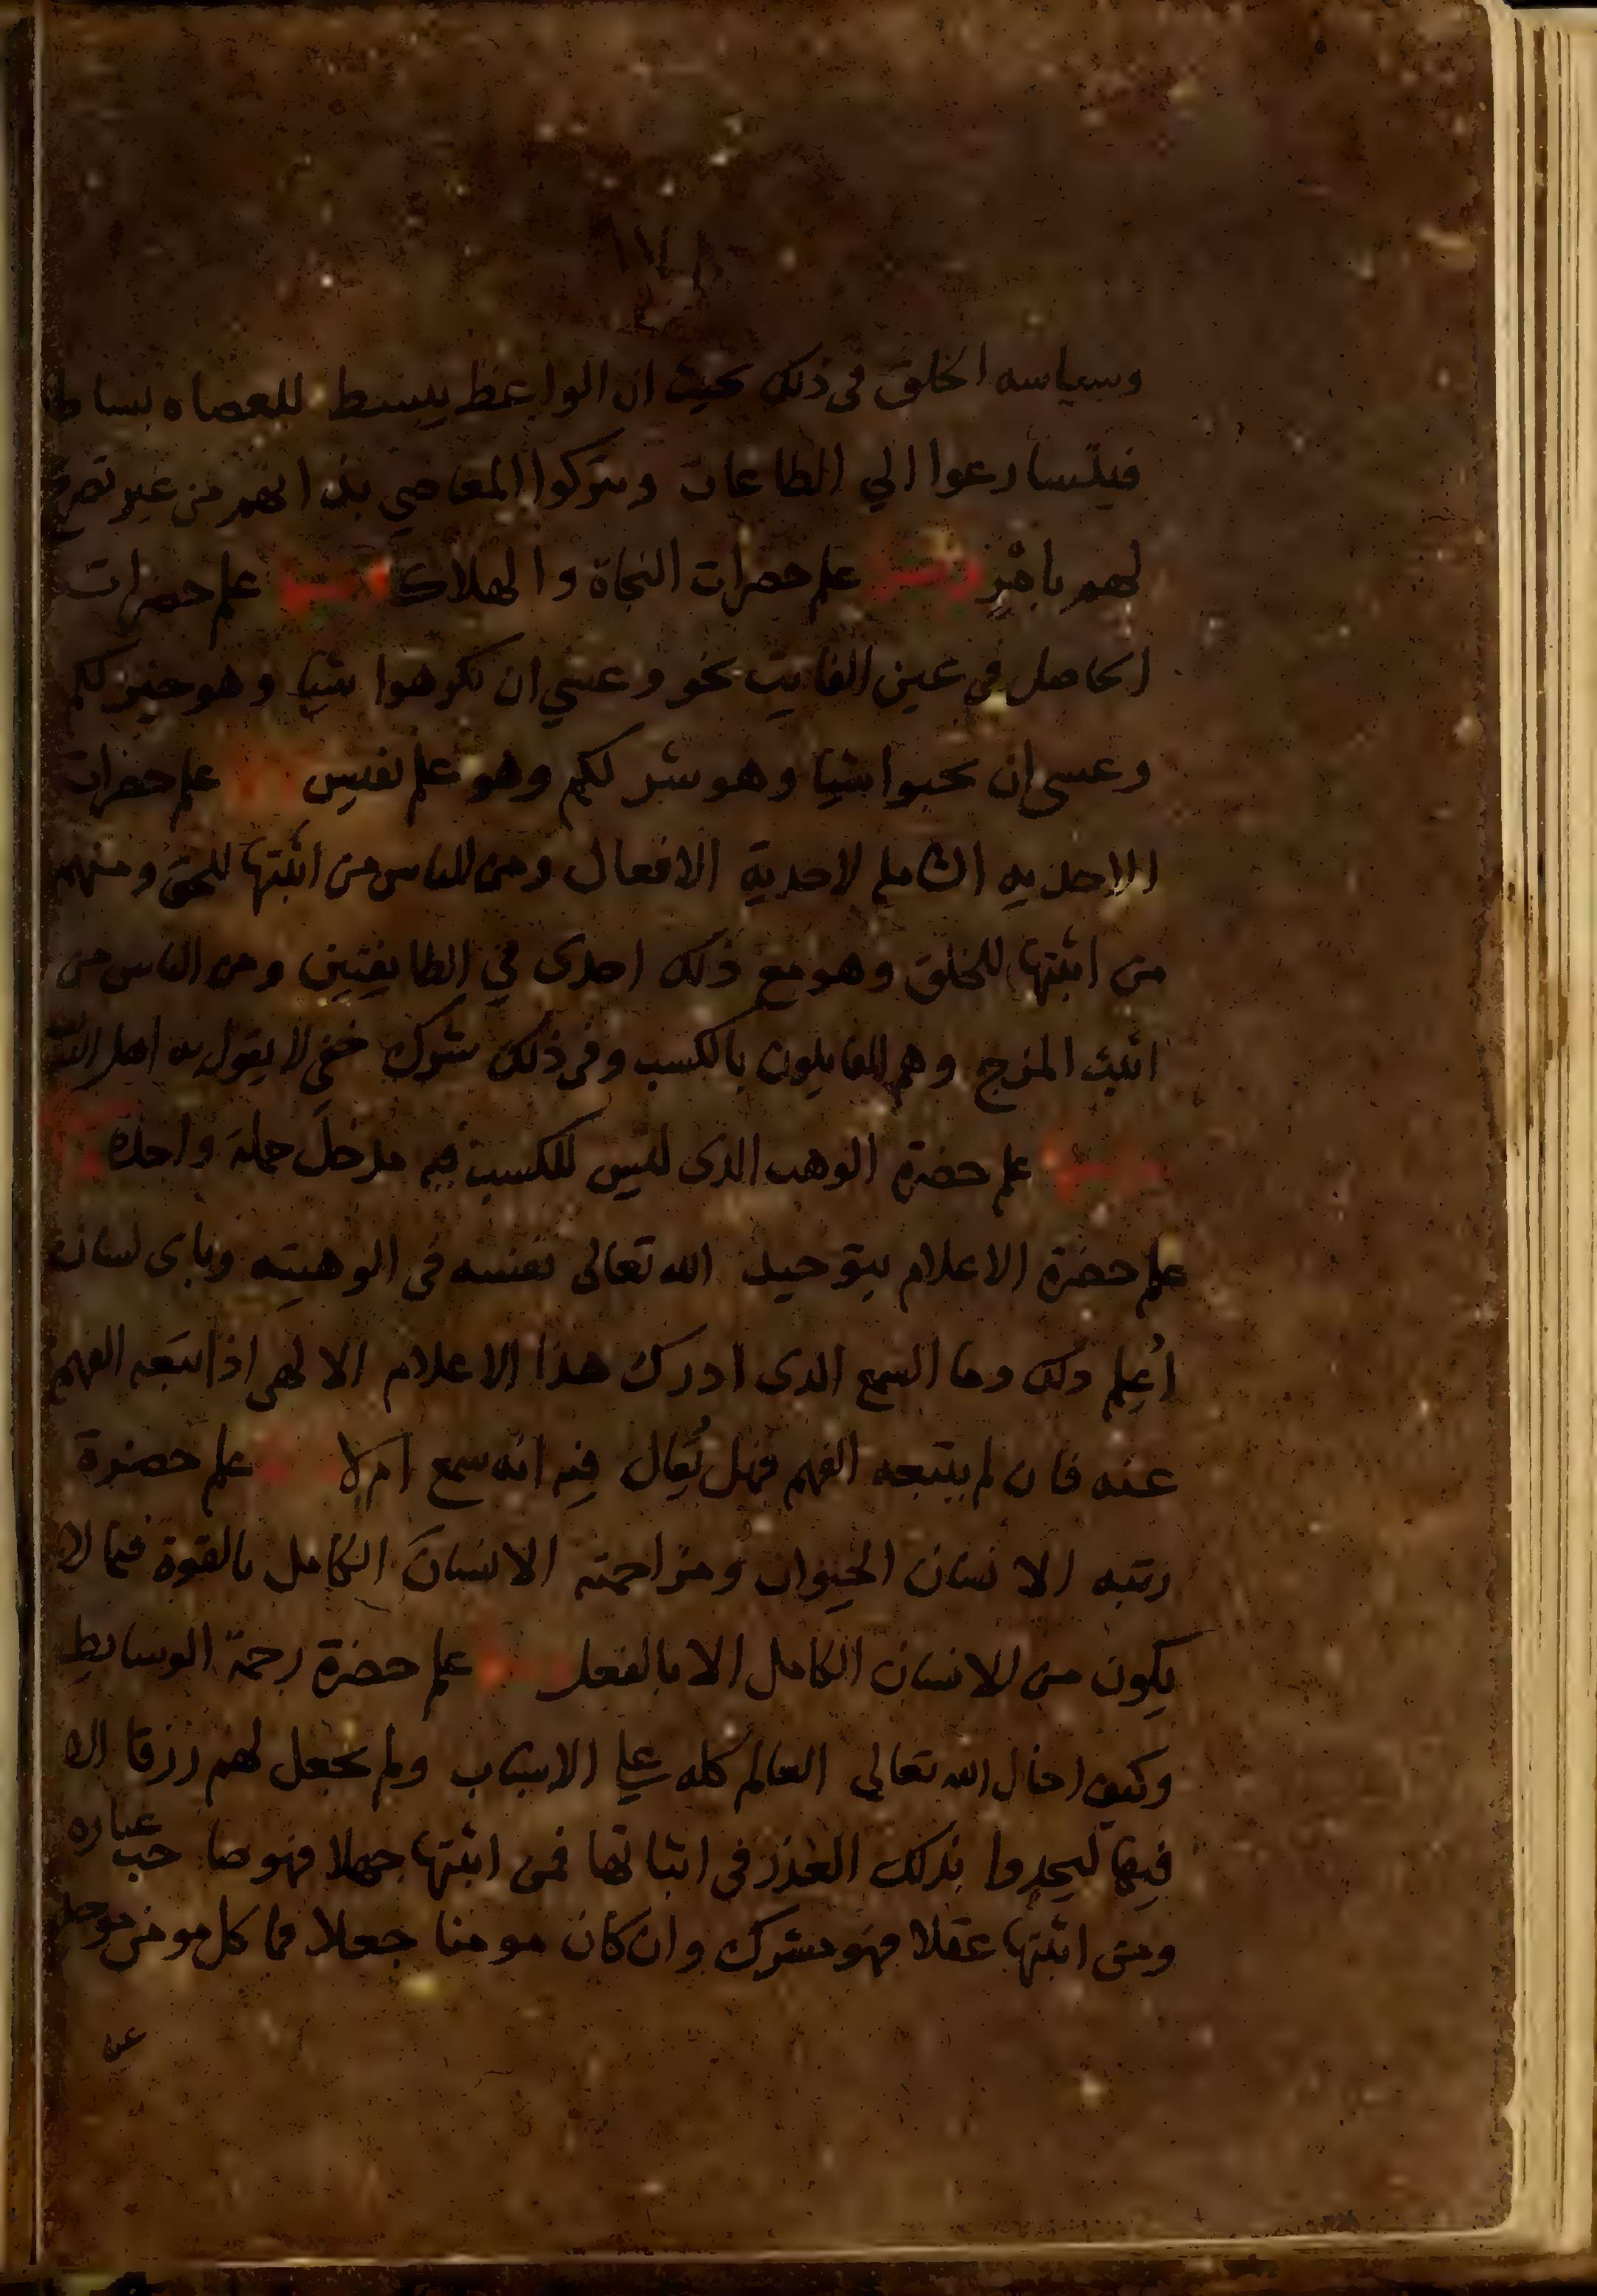 وسياسه الخلق في ذلك بحيث ان الواعظ يبسط للعصاه بساط
فيتسارعوا الي الطاعات ويتركوا المعاصي بذاتهم من غير تصرح
لهم بامر علم حضرات النجاة والهلاك علم حضرات
الحاصل في عين الفايت نحو وعسي ان تكرهوا شيا وهو خير لكم
وعسى ان تحبوا شيا وهو شر لكم وهو علم نفيس علم حضرات
الاحديه الشامله لاحدية الافعال ومن الناس من اثبتها للحق ومنهم
من اثبتها للخلق وهو مع ذلك احدى في الطايفتين ومن الناس من
اثبت المزج وهم القايلون بالكسب وفي ذلك شرك خفي لا يقول به اهل الله
علم حضرة الوهب الدى ليس للكسب فيه مدخل جملة واحدة
علم حضرة الاعلام بتوحيد الله تعالى نفسه في الوهيته وباى لسان
اُعلِم ذلك وما السمع الدى ادرك هذا الاعلام الالهى اذا تبعه الفهم
عنه فان لم يتبعه الفهم فهل يُقال فيه انه سمع ام لا علم حضرة
رتبه الانسان الحيوان ومزاحمته الانسان الكامل بالقوة فيما لا
يكون من الانسان الكامل الا بالفعل علم حضرة رحمة الوسايط
وكيف احال الله تعالى العالم كله على الاسباب ولم يجعل لهم رزقا الا
فيها ليجدوا بذلك العذر في اثباتها فمن اثبتها جهلا فهو صاحب عباره
ومن اثبتها عقلا فهو مشرك وان كان مومنا جعلا فما كل مومن موحد
عن